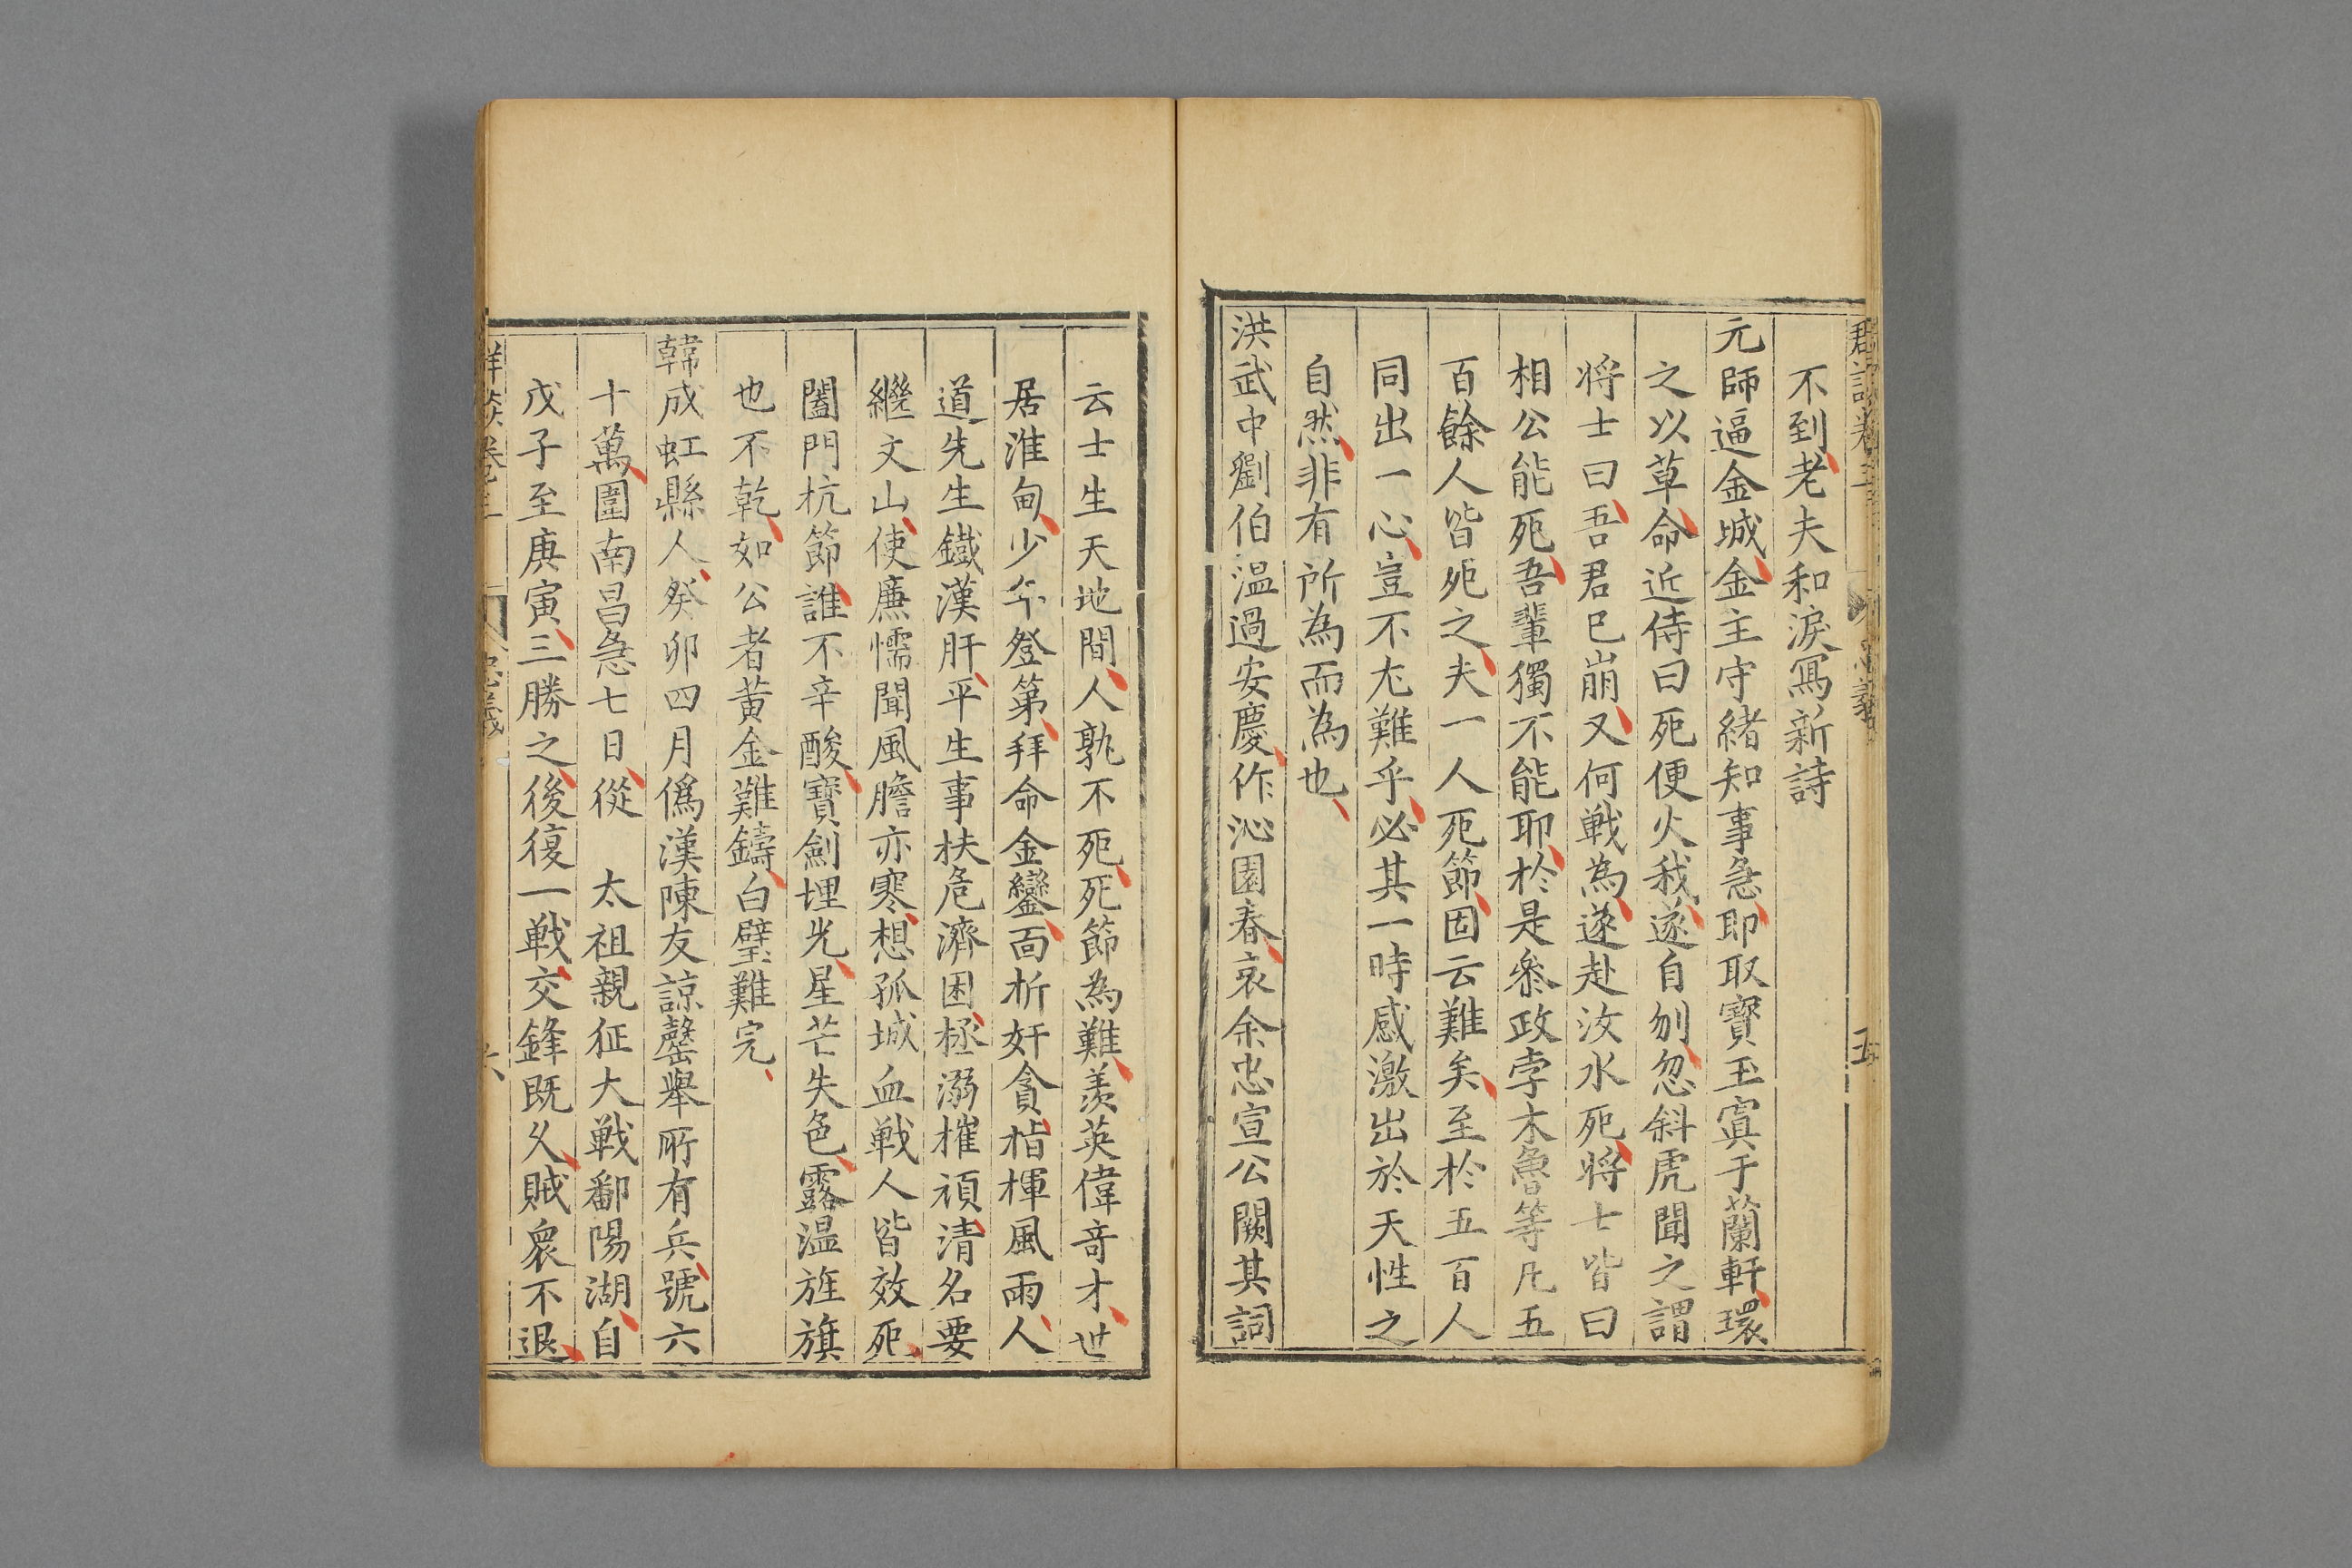 不到老夫和淚寫新詩
元師逼金城金主守緒知事急即取寳玉寘于蘭軒環
之以草命近侍曰死便火我遂自刎忽斜虎聞之謂
将士曰吾君已崩又何戦為遂赴汝水死将士皆曰
相公能死吾輩獨不能耶於是叅政孛木魯等凡五
百餘人皆死之夫一人死節固云難矣至於五百人
同出一心豈不尤難乎必其一時感激出於天性之
自然非有所為而為也
洪武中劉伯温過安慶作沁園春哀余忠宣公闕其詞
云士生天地間人孰不死死節為難羡英偉竒才世
居淮甸少年登第拜命金鑾面折奸貪指揮風雨人
道先生鐵漢肝平生事扶危濟困拯溺摧頑清名要
繼文山使廉懦聞風膽亦寒想孤城血戦人皆效死
闔門抗節誰不辛酸寳劍埋光星芒失色露温旌旗
也不乾如公者黄金難鑄白璧難完
韓成虹縣人癸卯四月偽漢陳友諒罄舉所有兵號六
十萬圍南昌急七日從 太祖親征大戦鄱陽湖自
戊子至庚寅三勝之後復一戦交鋒既久賊衆不退